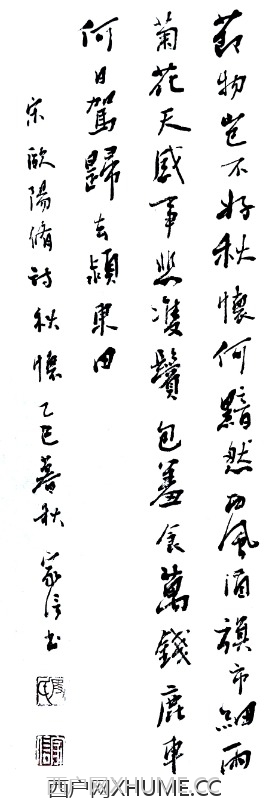 節物豈不好秋懷何黯然西風酒旗市細雨
菊花天感事悲雙鬢包羞食萬錢鹿車
何日駕歸去潁東田
宋歐陽脩詩秋懷乙巳暮秋家信書
西户网XHUME.CC